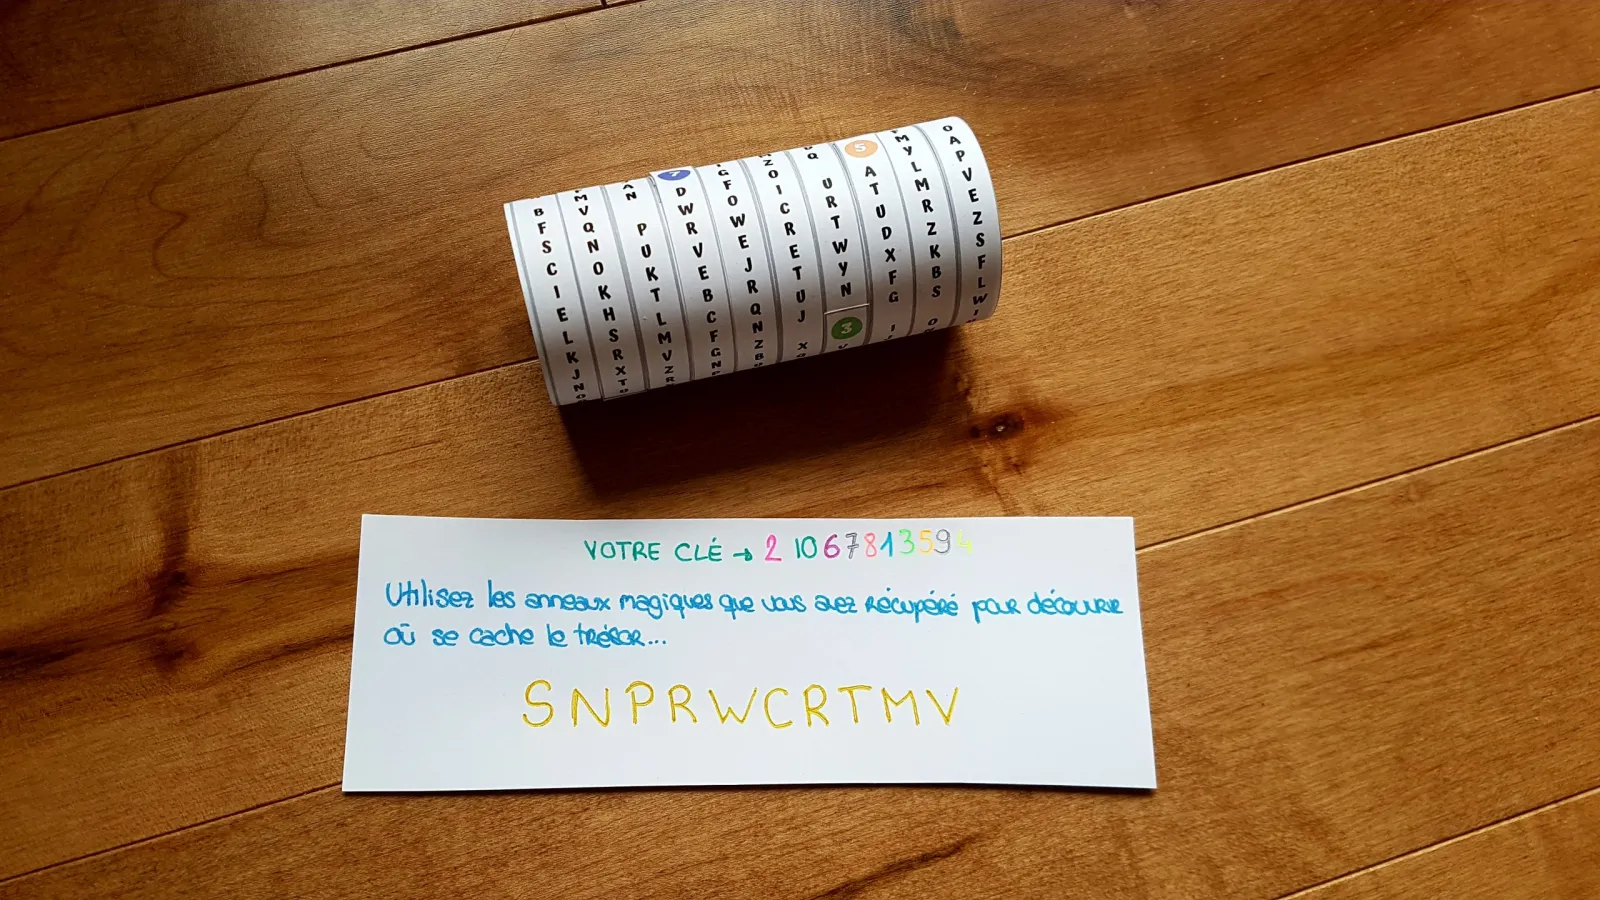 B F S C I E L K J N O
M V Q N O K H S R X T O
A N P U K T L M V Z R
7 D W R V E B C F G N
G F O W E J R Q N Z B
Z O I C R E T U J X
Q U R T W Y N 3 V
5 A T U D X F G I
M Y L M R Z K B S O
O A P V E Z S F L W
VOTRE CLÉ → 2 10 6 7 8 1 3 5 9 4
Utilisez les anneaux magiques que vous avez récupéré pour découvrir
où se cache le trésor...
SNPRWCRTMV